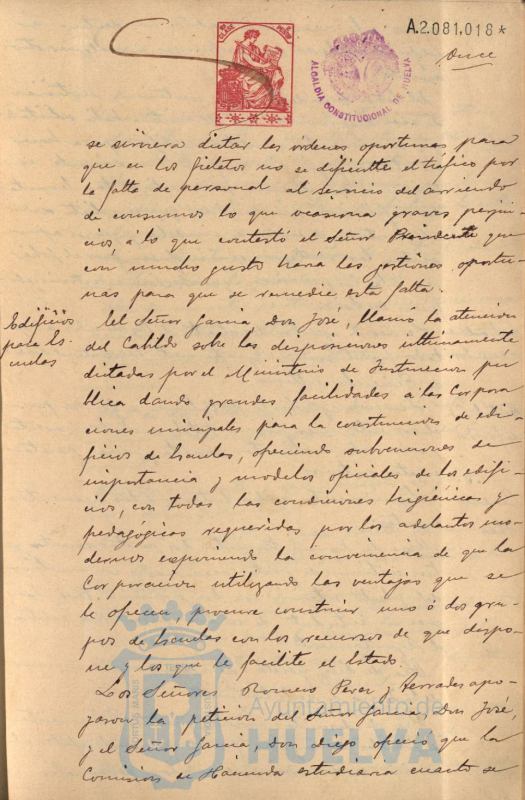 A.2.081.018*
CLASE
ALCALDIA CONSTITUCIONAL DE HUELVA
Once
se sirviera dictar las órdenes oportunas para
que en los fielatos no se dificulte el tráfico por
la falta de personal al servicio del arriendo
de consumos lo que ocasiona graves perjui-
cios, á lo que contestó el Señor Presidente que
con mucho gusto haría las gestiones oportu-
nas para que se remedie esta falta.
Edificios
para Es-
cuelas
El Señor Garcia, Don José, llamó la atención
del Cabildo sobre las disposiciones ultimamente
dictadas por el Ministerio de Instruccion pú-
blica dando grandes facilidades á las Corpora-
ciones municipales para la construccion de edi-
ficios de Escuelas, ofreciendo subvenciones de
importancia y modelos oficiales de los edifi-
cios, con todas las condiciones higiénicas y
pedagógicas requeridas por los adelantos mo-
dernos exponiendo la conveniencia de que la
Corporacion utilizando las ventajas que se
le ofrecen, procure construir uno ó dos gru-
pos de Escuelas con los recursos de que dispo-
ne y los que le facilite el Estado.
Los Señores Romero Perez y Terrades apo-
yaron la peticion del Señor Garcia, Don José,
y el Señor Garcia, Don Diego ofreció que la
Comision de Hacienda estudiaria cuanto se
Ayuntamiento de
HUELVA